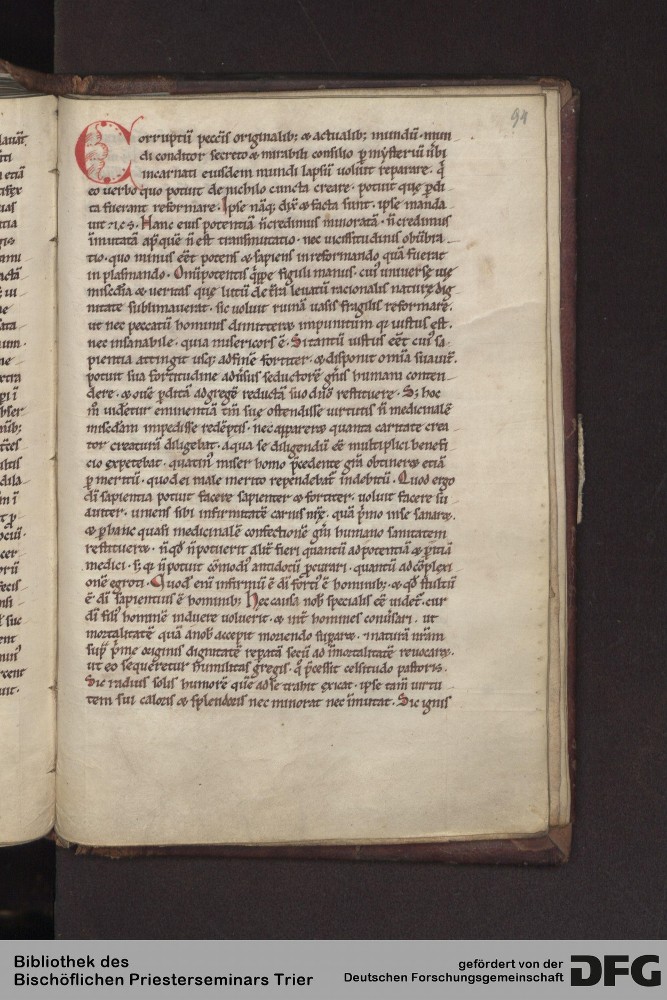 94
Corruptū pecc̄is originalib; & actualib; mundū · mun
di conditor secreto & mirabili consilio p̱ mẏsteriū ūbi
incarnati eiusdem mundi lapsū uoluit reparare · q̄
eo uerbo quo potuit de nichilo cuncta creare · potuit quę p̱di
ta fuerant reformare · Ipse nāq; dix̄ & facta sunt · ipse manda
uit · Hanc eius potentiā n̄ credimus minoratā · n̄ credimus
īmutatā ap̄ quē n̄ est transmutatio · nec uicissitudinis obūbra
tio · quo minus eēt potens & sapiens in reformando quā fuerat
in plasmando · Omīpotentis q̄ppe figuli manus · cui' uniuersę uię
misc̄dia & ueritas quę limū de t̄ra leuatū racionalis naturę dig
nitate sublimauerat · sic uoluit ruinā uasis fragilis reformare ·
ut nec peccatū hominis dimitteret̄ impunitum q̄ iustus est ·
nec insanabile · quia misericors ē · Si tantū iustus eēt cui' sa
pientia attingit usq; ad finē fortiter · & disponit om̄ia suauit̄ ·
potuit sua fortitudine adūsus seductorē gn̄is humani conten
dere · & ouē p̱ditā ad gregē reductā suo restituere · S; hoc
m̄ uidetur eminentiā tm̄ suę ostendisse uirtutis n̄ medicinalē
misc̄diam impedisse redēptis · nec appareret̄ quanta caritate crea
tor creaturā diligebat · a qua se diligendū eē multiplici benefi
cio expetebat · quatin' miser homo p̄cedente gr̄a obtineret etiā
p̱ meritū · quod ei male merito rependebat̄ indebitū · Quod ergo
dī sapientia potuit facere sapienter & fortiter · uoluit facere su
auiter · uniens sibi infirmitatē carnis nr̄ę · quā p̄mo uīse sanaret̄ ·
& p̱ hanc quasi medicinalē confectionē gn̄i humano sanitatem
restitueret̄ · n̄ qd̄ n̄ potuerit alit̄ fieri quantū ad potentiā & p̱itiā
medici · s; q̄ n̄ potuit cōmodi' antidotū p̱curari · quantū ad cōplexi
onē egroti · Quod enī infirmū ē dī forti' ē hominib; · & qd̄ stultū
ē dī sapientius ē hominib; Hec causa nob̄ specialis eē uidet̄ · cur
dī fili' hominē induere uoluerit · & int̄ homines conūsari · ut
mortalitatē quā a nob̄ accepit moriendo fugaret̄ · naturā nr̄am
sup̱ p̄me originis dignitatē repatā secū ad īmortalitatē reuocaret̄ ·
ut eo sequeretur humilitas gregis · q̄ p̄cessit celsitudo pastoris ·
Sic radius solis humorē quē ad se trahit exicat · ipse tam̄ uirtu
tem sui caloris & splendoris nec minorat nec īmutat · Sic ignis
Bibliothek des
Bischöflichen Priesterseminars Trier
gefördert von der
Deutschen Forschungsgemeinschaft
DFG